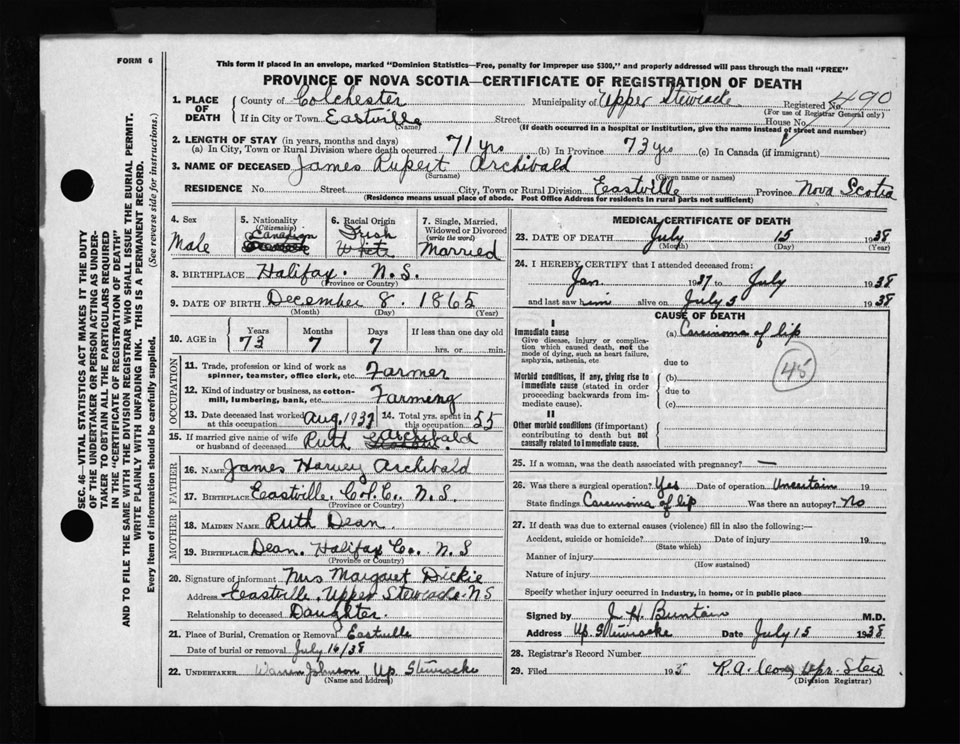 FORM 6
This form if placed in an envelope, marked "Dominion Statistics—Free, penalty for improper use $300," and properly addressed will pass through the mail "FREE"
PROVINCE OF NOVA SCOTIA—CERTIFICATE OF REGISTRATION OF DEATH
SEC. 46—VITAL STATISTICS ACT MAKES IT THE DUTY
OF THE UNDERTAKER OR PERSON ACTING AS UNDER-
TAKER TO OBTAIN ALL THE PARTICULARS REQUIRED
IN THE "CERTIFICATE OF REGISTRATION OF DEATH"
AND TO FILE THE SAME WITH THE DIVISION REGISTRAR WHO SHALL ISSUE THE BURIAL PERMIT.
WRITE PLAINLY WITH UNFADING INK. THIS IS A PERMANENT RECORD.
Every item of information should be carefully supplied. (See reverse side for instructions.)
1. PLACE OF DEATH County of Colchester Municipality of Upper Stewiacke Registered No. 490
(For use of Registrar General only)
If in City or Town Eastville Street House No.
(Name) (If death occurred in a hospital or institution, give the name instead of street and number)
2. LENGTH OF STAY (in years, months and days)
(a) In City, Town or Rural Division where death occurred 71 yrs (b) In Province 73 yrs (c) In Canada (if immigrant)
3. NAME OF DECEASED James Rupert Archibald
(Surname) (Given name or names)
RESIDENCE No. Street City, Town or Rural Division Eastville Province Nova Scotia
(Residence means usual place of abode. Post Office Address for residents in rural parts not sufficient)
4. Sex Male
5. Nationality (Citizenship) Canadian
6. Racial Origin Irish White
7. Single, Married, Widowed or Divorced (write the word) Married
8. BIRTHPLACE Halifax. N.S.
(Province or Country)
9. DATE OF BIRTH December 8. 1865
(Month) (Day) (Year)
10. AGE in Years 73 Months 7 Days 7 If less than one day old hrs. or min.
OCCUPATION
11. Trade, profession or kind of work as spinner, teamster, office clerk, etc. Farmer
12. Kind of industry or business, as cotton-mill, lumbering, bank, etc. Farming
13. Date deceased last worked at this occupation Aug. 1937 14. Total yrs. spent in 55
15. If married give name of wife or husband of deceased Ruth Archibald
FATHER
16. NAME James Harvey Archibald
17. BIRTHPLACE Eastville. Col. Co. N.S.
(Province or Country)
MOTHER
18. MAIDEN NAME Ruth Dean
19. BIRTHPLACE Dean. Halifax Co. N.S
(Province or Country)
20. Signature of informant Mrs Margaret Dickie
Address Eastville, Upper Stewiacke N S
Relationship to deceased Daughter.
21. Place of Burial, Cremation or Removal Eastville
Date of burial or removal July 16/38
22. UNDERTAKER Warren Johnson, Up. Stewiacke
(Name and Address)
MEDICAL CERTIFICATE OF DEATH
23. DATE OF DEATH July 15 1938
(Month) (Day) (Year)
24. I HEREBY CERTIFY that I attended deceased from:
Jan. 1937 to July 1938
and last saw him alive on July 5 1938
CAUSE OF DEATH
I
Immediate cause (a) Carcinoma of lip
Give disease, injury or complication which caused death, not the mode of dying, such as heart failure, asphyxia, asthenia, etc.
due to
Morbid conditions, if any, giving rise to immediate cause (stated in order proceeding backwards from immediate cause). (b)
due to
(c)
45
II
Other morbid conditions (if important) contributing to death but not causally related to immediate cause.
25. If a woman, was the death associated with pregnancy? —
26. Was there a surgical operation? Yes Date of operation Uncertain 19
State findings Carcinoma of lip Was there an autopsy? No
27. If death was due to external causes (violence) fill in also the following:—
Accident, suicide or homicide? Date of injury 19
(State which)
Manner of injury
(How sustained)
Nature of injury
Specify whether injury occurred in industry, in home, or in public place
Signed by J. H. Buntain M.D.
Address Up. Stewiacke Date July 15 1938
28. Registrar's Record Number
29. Filed 193 R. A. Upr. Stew
(Division Registrar)